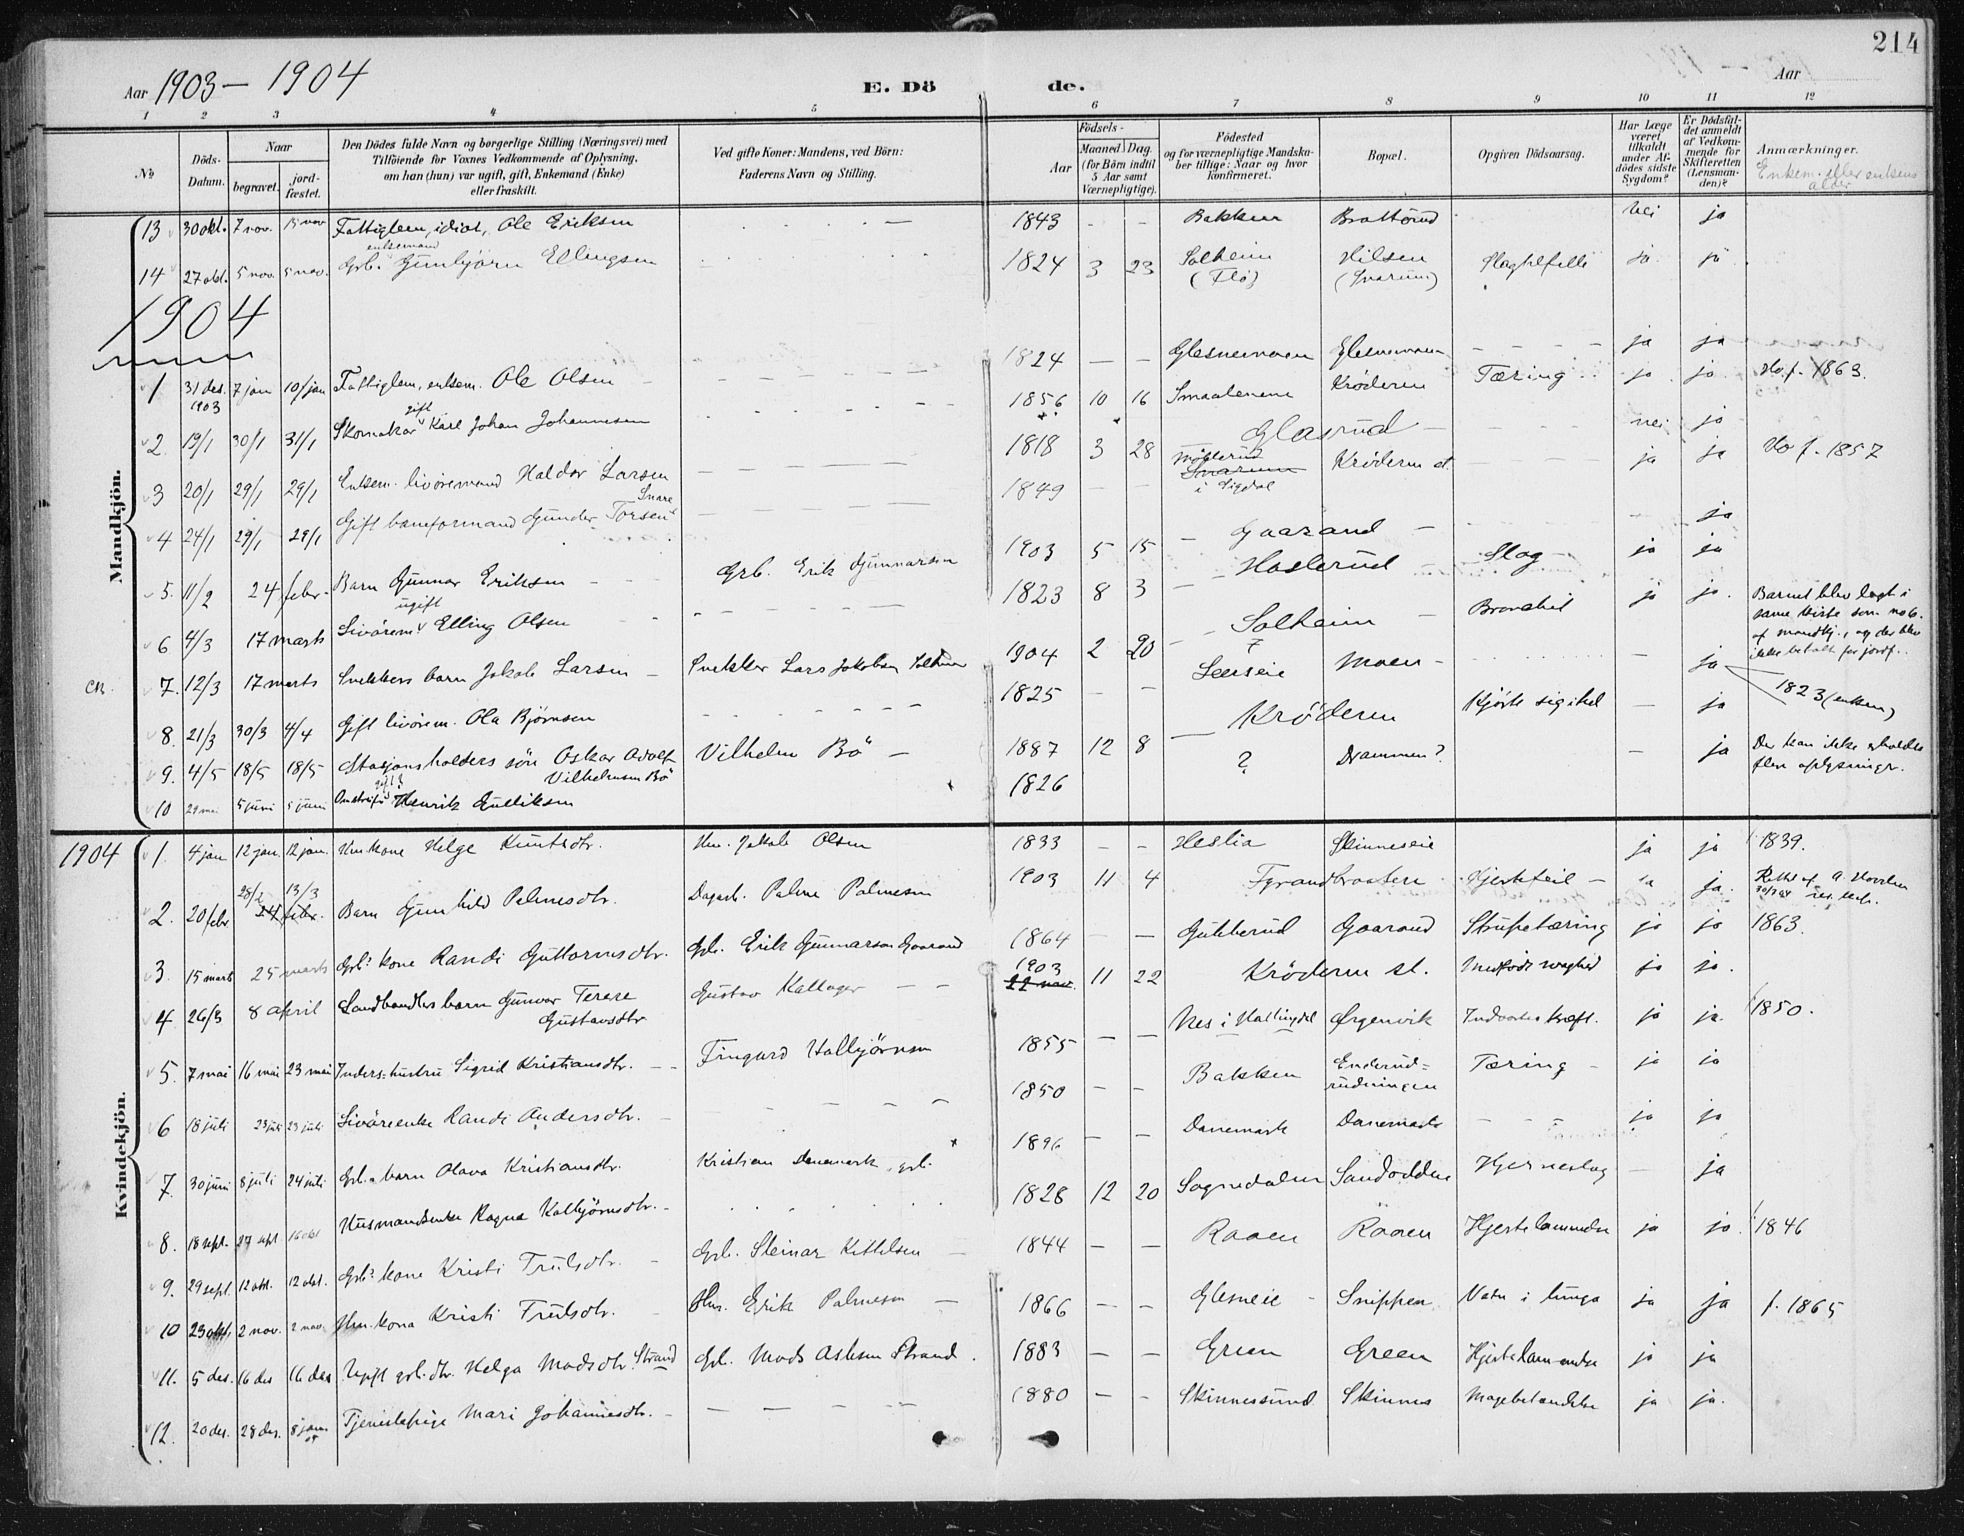 214
Aar 1903 – 1904
E. Dö de.
Aar
1 2 3 4 5 6 7 8 9 10 11 12
No
Döds-Datum.
Naar
begravet.
jord-fæstet.
Den Dödes fulde Navn og borgerlige Stilling (Næringsvei) med
Tilföiende for Voxnes Vedkommende af Oplysning,
om han (hun) var ugift, gift, Enkemand (Enke)
eller fraskilt.
Ved gifte Koner: Mandens, ved Börn:
Faderens Navn og Stilling.
Födsels-
Aar
Maaned. Dag.
(for Börn indtil
5 Aar samt
Værnepligtige).
Födested
og for værnepligtige Mandska-
ber tillige: Naar og hvor
konfirmeret.
Bopæl.
Opgiven Dödsaarsag.
Har Læge
været
tilkaldt
under Af-
dödes sidste
Sygdom?
Er Dödsfal-
det anmeldt
af Vedkom-
mende for
Skifteretten
(Lensman-
den)?
Anmærkninger.
Enkem. eller enkens
alder
Mandkjön.
13 30 okt. 7 nov. 15 nov Fattiglem, idiot, Ole Eriksen 1843 - - Bakken Brattérud nei ja
14 27 okt. 5 nov. 5 nov. Grb. enkemand Gunbjörn Ellingsen 1824 3 23 Solheim (Flö) Hilsen (Snarum) Slagtilfelle ja ja
1904
1 31 des. 1903 7 jan 10/jan Fattiglem, enkem. Ole Olsen 1824 — — Glesnemoen Glesnemoen ja ja
2 19/1 30/1 31/1 Skomaker gift Karl Johan Johannesen 1856 10 16 Smaalenene Kröderen Tæring ja ja f. 1863.
3 20/1 29/1 29/1 Enkem. livöremand Haldor Larsen 1818 3 28 Glasrud nei ja
4 24/1 29/1 29/1 Gift baneformand Gunder Torsen Snare 1849 - - Snarum i Sigdal Kröderen st. ja ja f. 1857
5. 11/2 24 febr. Barn Gunnar Eriksen Grb. Erik Gunnarsen 1903 5 15 Gaarand ja
6 4/3 17 marts Livörem. ugift Elling Olsen 1823 8 3 Haslerud Slag ja ja
CB. 7. 12/3 17 marts Snekkers barn Jakob Larsen Snekker Lars Jakobsen Solheim 1904 2 20 Solheim ja ja. Barnet blev lagt i
samme kiste som no 6.
af mandkj., og der blev
ikke betalt for jordf.
8. 21/3 30/3 4/4 Gift livörem. Ola Björnsen 1825 - - Moen ja 1823 (enken)
9. 4/5 18/5 18/5 Stasjonsholders sön Oskar Adolf Vilhelmsen Bö Vilhelm Bö 1887 12 8 Kröderen Skjöt sig ihel — ja
10 29 mai 5 juni 5 juni gift? Henrik Gulliksen 1826 ? Drammen? — ja Der kan ikke erholdes
flere oplysninger.
1904
Kvindekjön.
1. 4 jan 12 jan. 12 jan. Hm. kone Helge Knutsdtr. Hm. Jakob Olsen 1833 — — Heslia Skinneseie ja ja 1839.
2. 20 febr 28/2 24 febr. 13/3 Barn Gunhild Palmesdtr. Dagarb. Palme Palmesen 1903 11 4 Fyrandbraaten Hjertefeil ja ja.
3. 15 marts 25 marts Grb. kone Randi Guttormsdtr. Grb. Erik Gunnarson Gaarand 1864 — — Gubberud Gaarand Strupetæring ja ja 1863.
4 26/3 8 april Landhandlers barn Gunvor Terese Gustavsdtr Gustav Kallager 1903 22 nov. 11 22 Kröderen st. Medfödt svaghed ja ja.
5. 7 mai 16 mai 23 mai Inders. hustru Sigrid Kristiansdtr. Fingard Halbjörnsen 1855 — — Nes i Hallingdal Ørgenvik Indvortes kræft. ja ja. 1850.
6 18 juli 23 juli 23 juli Livöreenke Randi Andersdtr. 1850 - - Bakken Enderud=rudningen Tæring ja ja
7. 30 juni 8 juli 24 juli Grb. barn Olava Kristiansdtr. Kristian Danemark, grb. 1896 — — Danemark Danemark ja ja
8. 18 sept. 27 sept 16 okt Husmandsenke Ragna Kolbjörnsdtr. 1828 12 20 Sognedalen Sandodden Hjerneslag — ja
9. 29 sept. 12 okt. 12 okt. Grb. kone Kristi Trulsdtr. Grb. Steinar Kittelsen 1844 — — Raaen Raaen Hjertelammelse ja ja. 1846
10 23 okt. 2 nov. 2 nov. Hm. kona Kristi Trulsdtr. Hm. Erik Palmesen 1866 — — Glesneie Snippen Vatn i lunga ja ja f. 1865
11. 5 des. 16 des 16 des Ugift grb. dtr. Helga Madsdtr. Strand Grb. Mads Aslesen Strand 1883 — — Green Green Hjertelammelse ja ja
12. 20 des. 28 des. 8 jan. Tjenestepige Mari Johannesdtr. 1880 — — Skinnessund Skinnes Mavebetændelse ja ja.